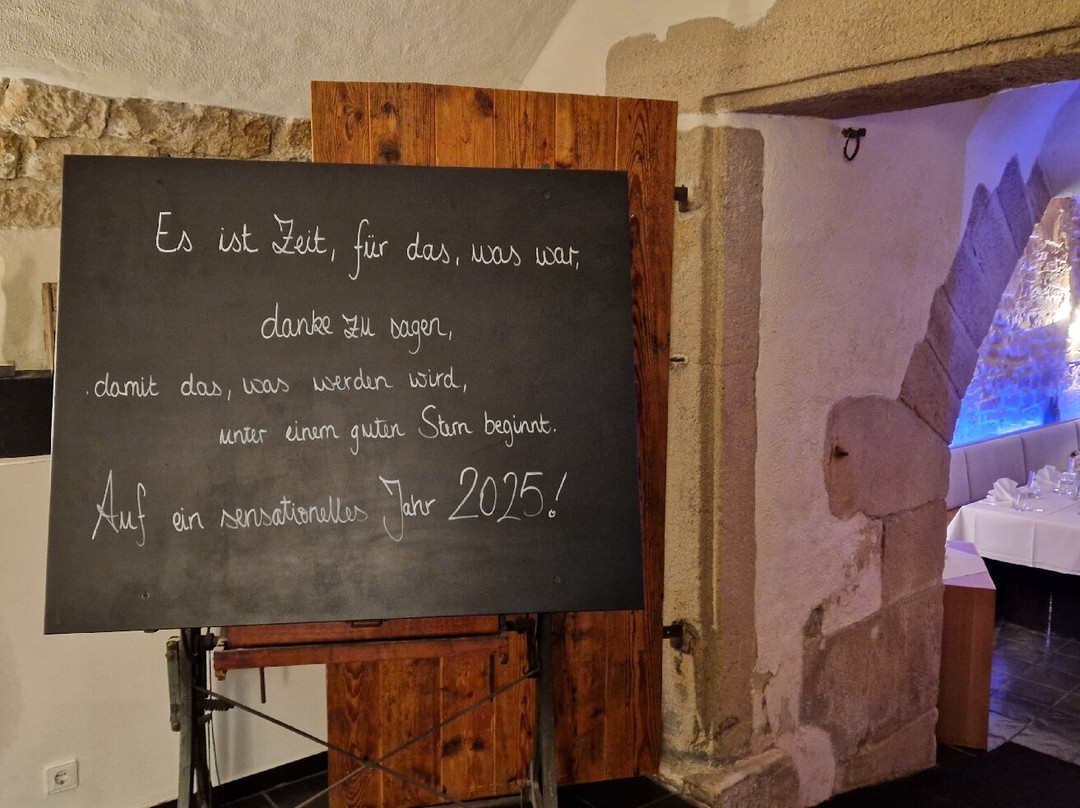 Es ist Zeit, für das, was war,
danke zu sagen,
damit das, was werden wird,
unter einem guten Stern beginnt.
Auf ein sensationelles Jahr 2025!